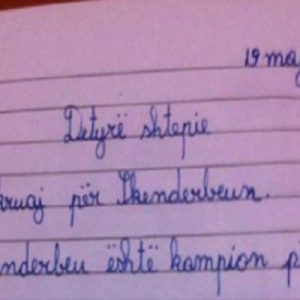 19 ma
Detyrë shtepie
kruaj për Skenderbeun.
nderbeu është kampion p